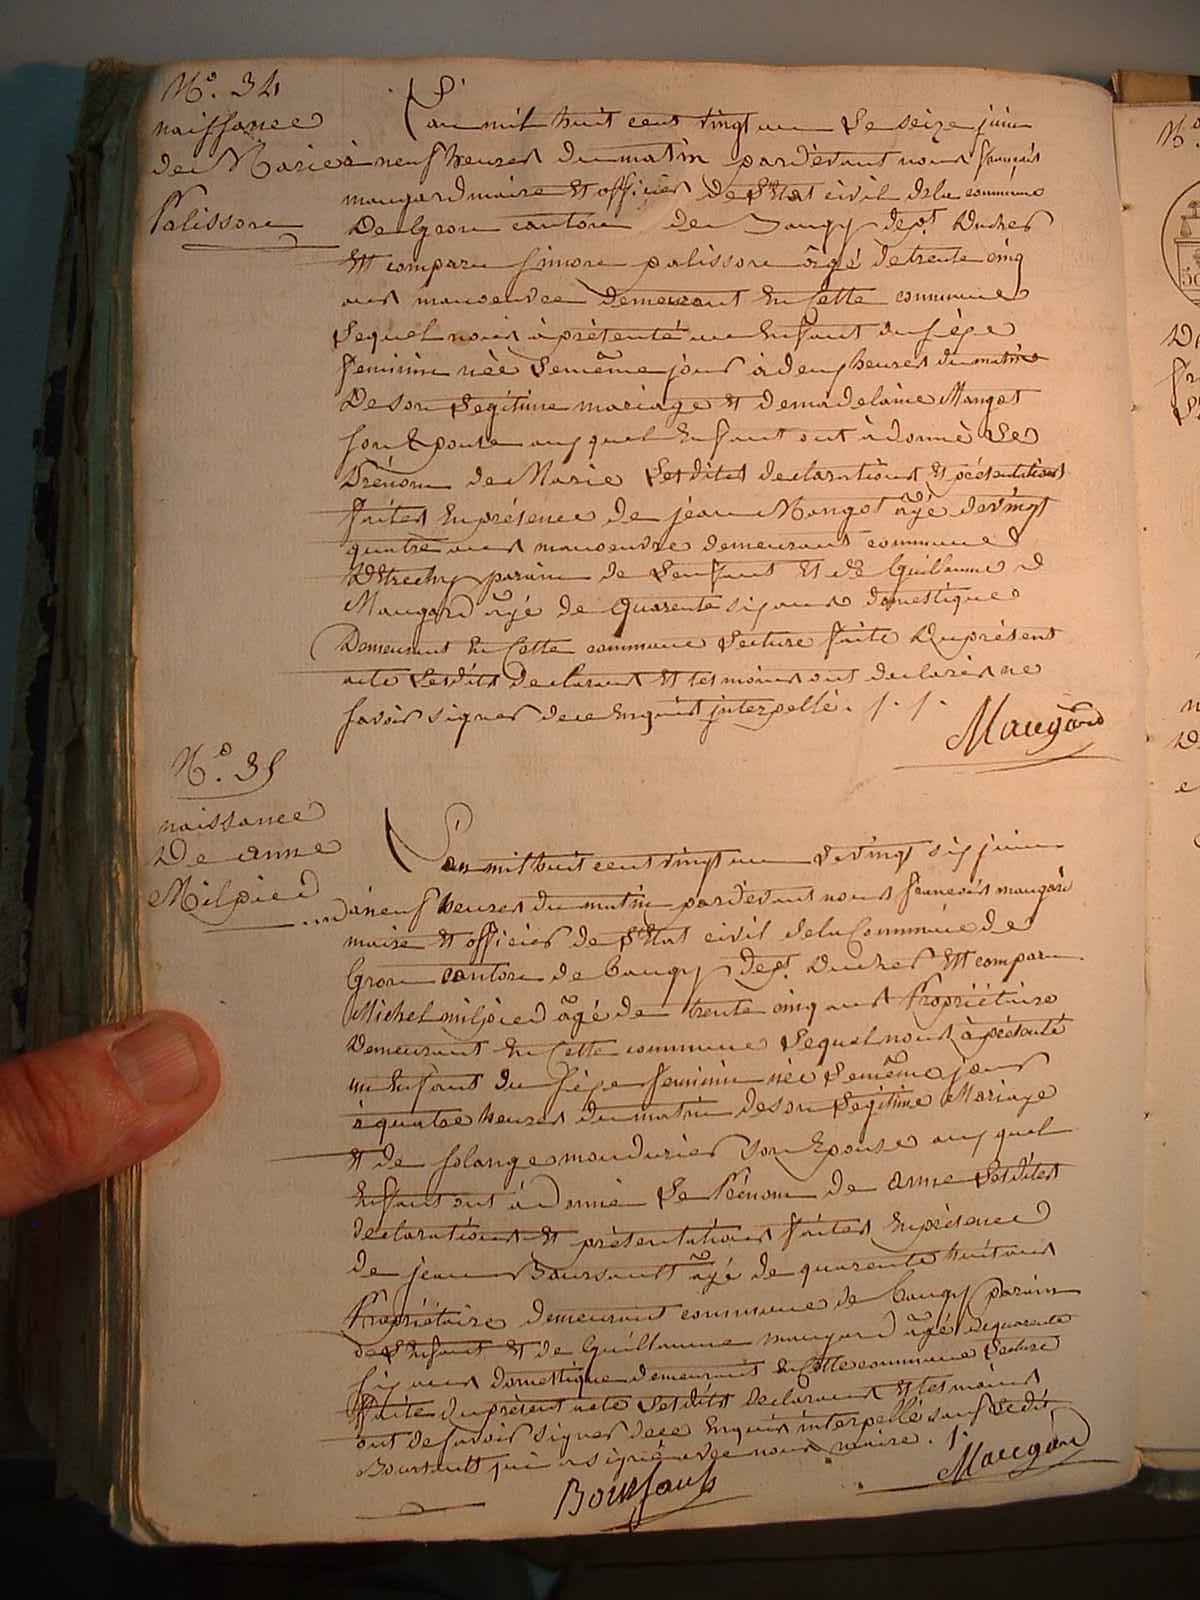 N.o 34
naissance
de Marie
Palisson
L'an mil huit cent vingt un Le seize juin
à neuf heures du matin pardevant nous françois
maugard maire Et officier de L'Etat civil dela commune
De Gron canton de Baugy dept. Ducher
Est comparu simon palisson âgé de trente cinq
ans manoeuvre demeurant En Cette commune
Lequel nous à présenté un Enfant du sexe
feminin néé Le même jour à deux heures du matin
De son Legitime mariage Et de madelaine Mangot
son Epouse auquel Enfant ont à donné Le
Prénom de Marie Lesdites declarations Et présentations
faites En présence de jean Mangot âgé de vingt
quatre ans manoeuvre demeurant commune
D'Etrechy parain de L'enfant Et de Guillaume
Maugard âgé de Quarente six ans domestique
Demeurant En Cette commune Lecture faite Du présent
acte Lesdits declarant Et tesmoins ont declarés ne
savoir signer dece Enquis interpellé . / . / .
Maugard
N.o 35
naissance
De anne
Milpied
L'an mil huit cent vingt un Le vingt six juin
à neuf heures du matin pardevant nous francois maugard
maire Et officier de L'Etat civil dela Commune de
Gron Canton de Baugy dept. Ducher Est comparu
Michel milpied âgé de trente cinq ans Propriétaire
Demeurant En Cette commune Lequel nous à présenté
un Enfant du sexe feminin née Le même jour
à quatre heures du matin de son Legitime Mariage
Et de solange mouduvier son Epouse auquel
Enfant ont à donné Le Prénom de anne Lesdites
declarations Et présentations faites En présence
de jean Boursault âgé de quarente huit ans
Propriétaire demeurant commune de Baugy parain
de L'Enfant Et de Guillaume maugard âgé de quarente
six ans domestique demeurant En Cette commune Lecture
faite Du présent acte Lesdits declarant Et tesmoins
ont de savoir signer dece Enquis interpellé sauf Ledit
Boursault qui a signé avec nous maire . / .
Boursault
Maugard